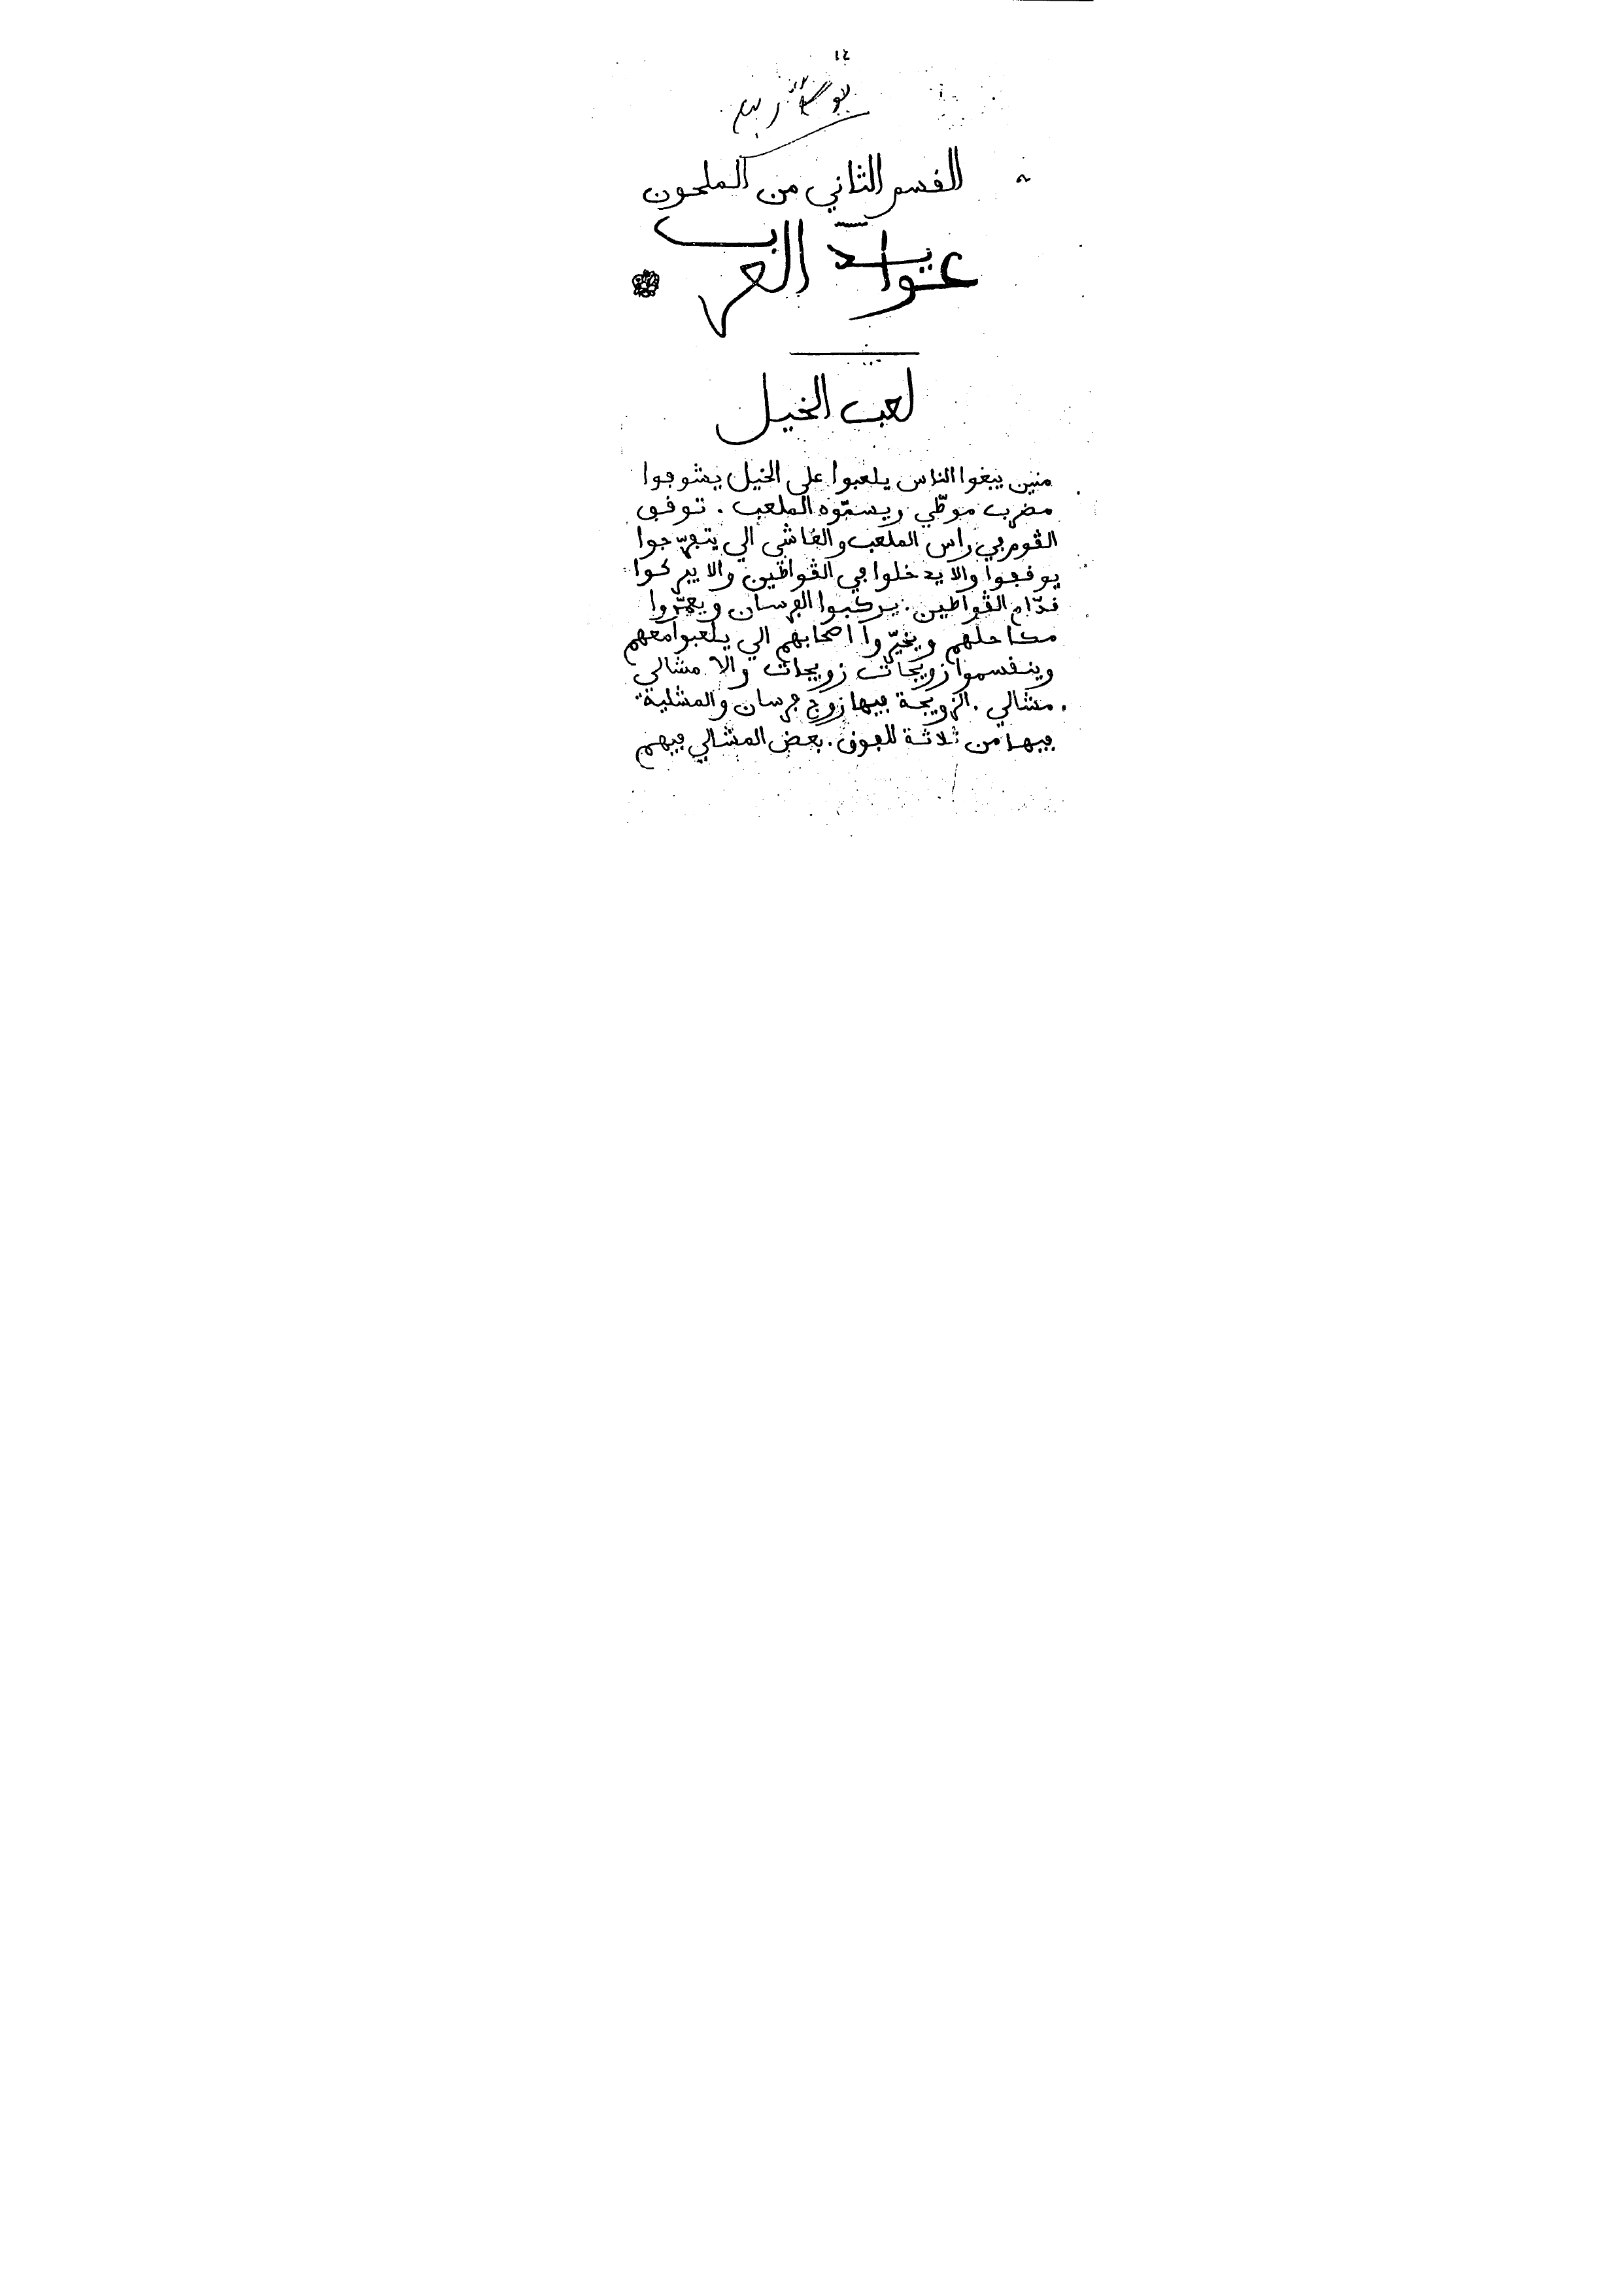 ١٤
القسم الثاني من الملحون
عوايد العرب
لعب الخيل
منين يبغوا الناس يلعبوا على الخيل يشوفوا
مضرب موطّي ويسمّوه الملعب . توقف
الڤوم في راس الملعب والغاشي الي يتفرّجوا
يوقفوا والا يدخلوا في الڤواطين والا يبركوا
قدّام الڤواطين . يركبوا الفرسان ويعمّروا
مكاحلهم ويخيّروا اصحابهم الي يلعبوا معهم
وينقسموا زويجات زويجات والا مشالي
مشالي . الزويجة فيها زوج فرسان والمشلية
فيها من ثلاثة للفوق . بعض المشالي فيهم